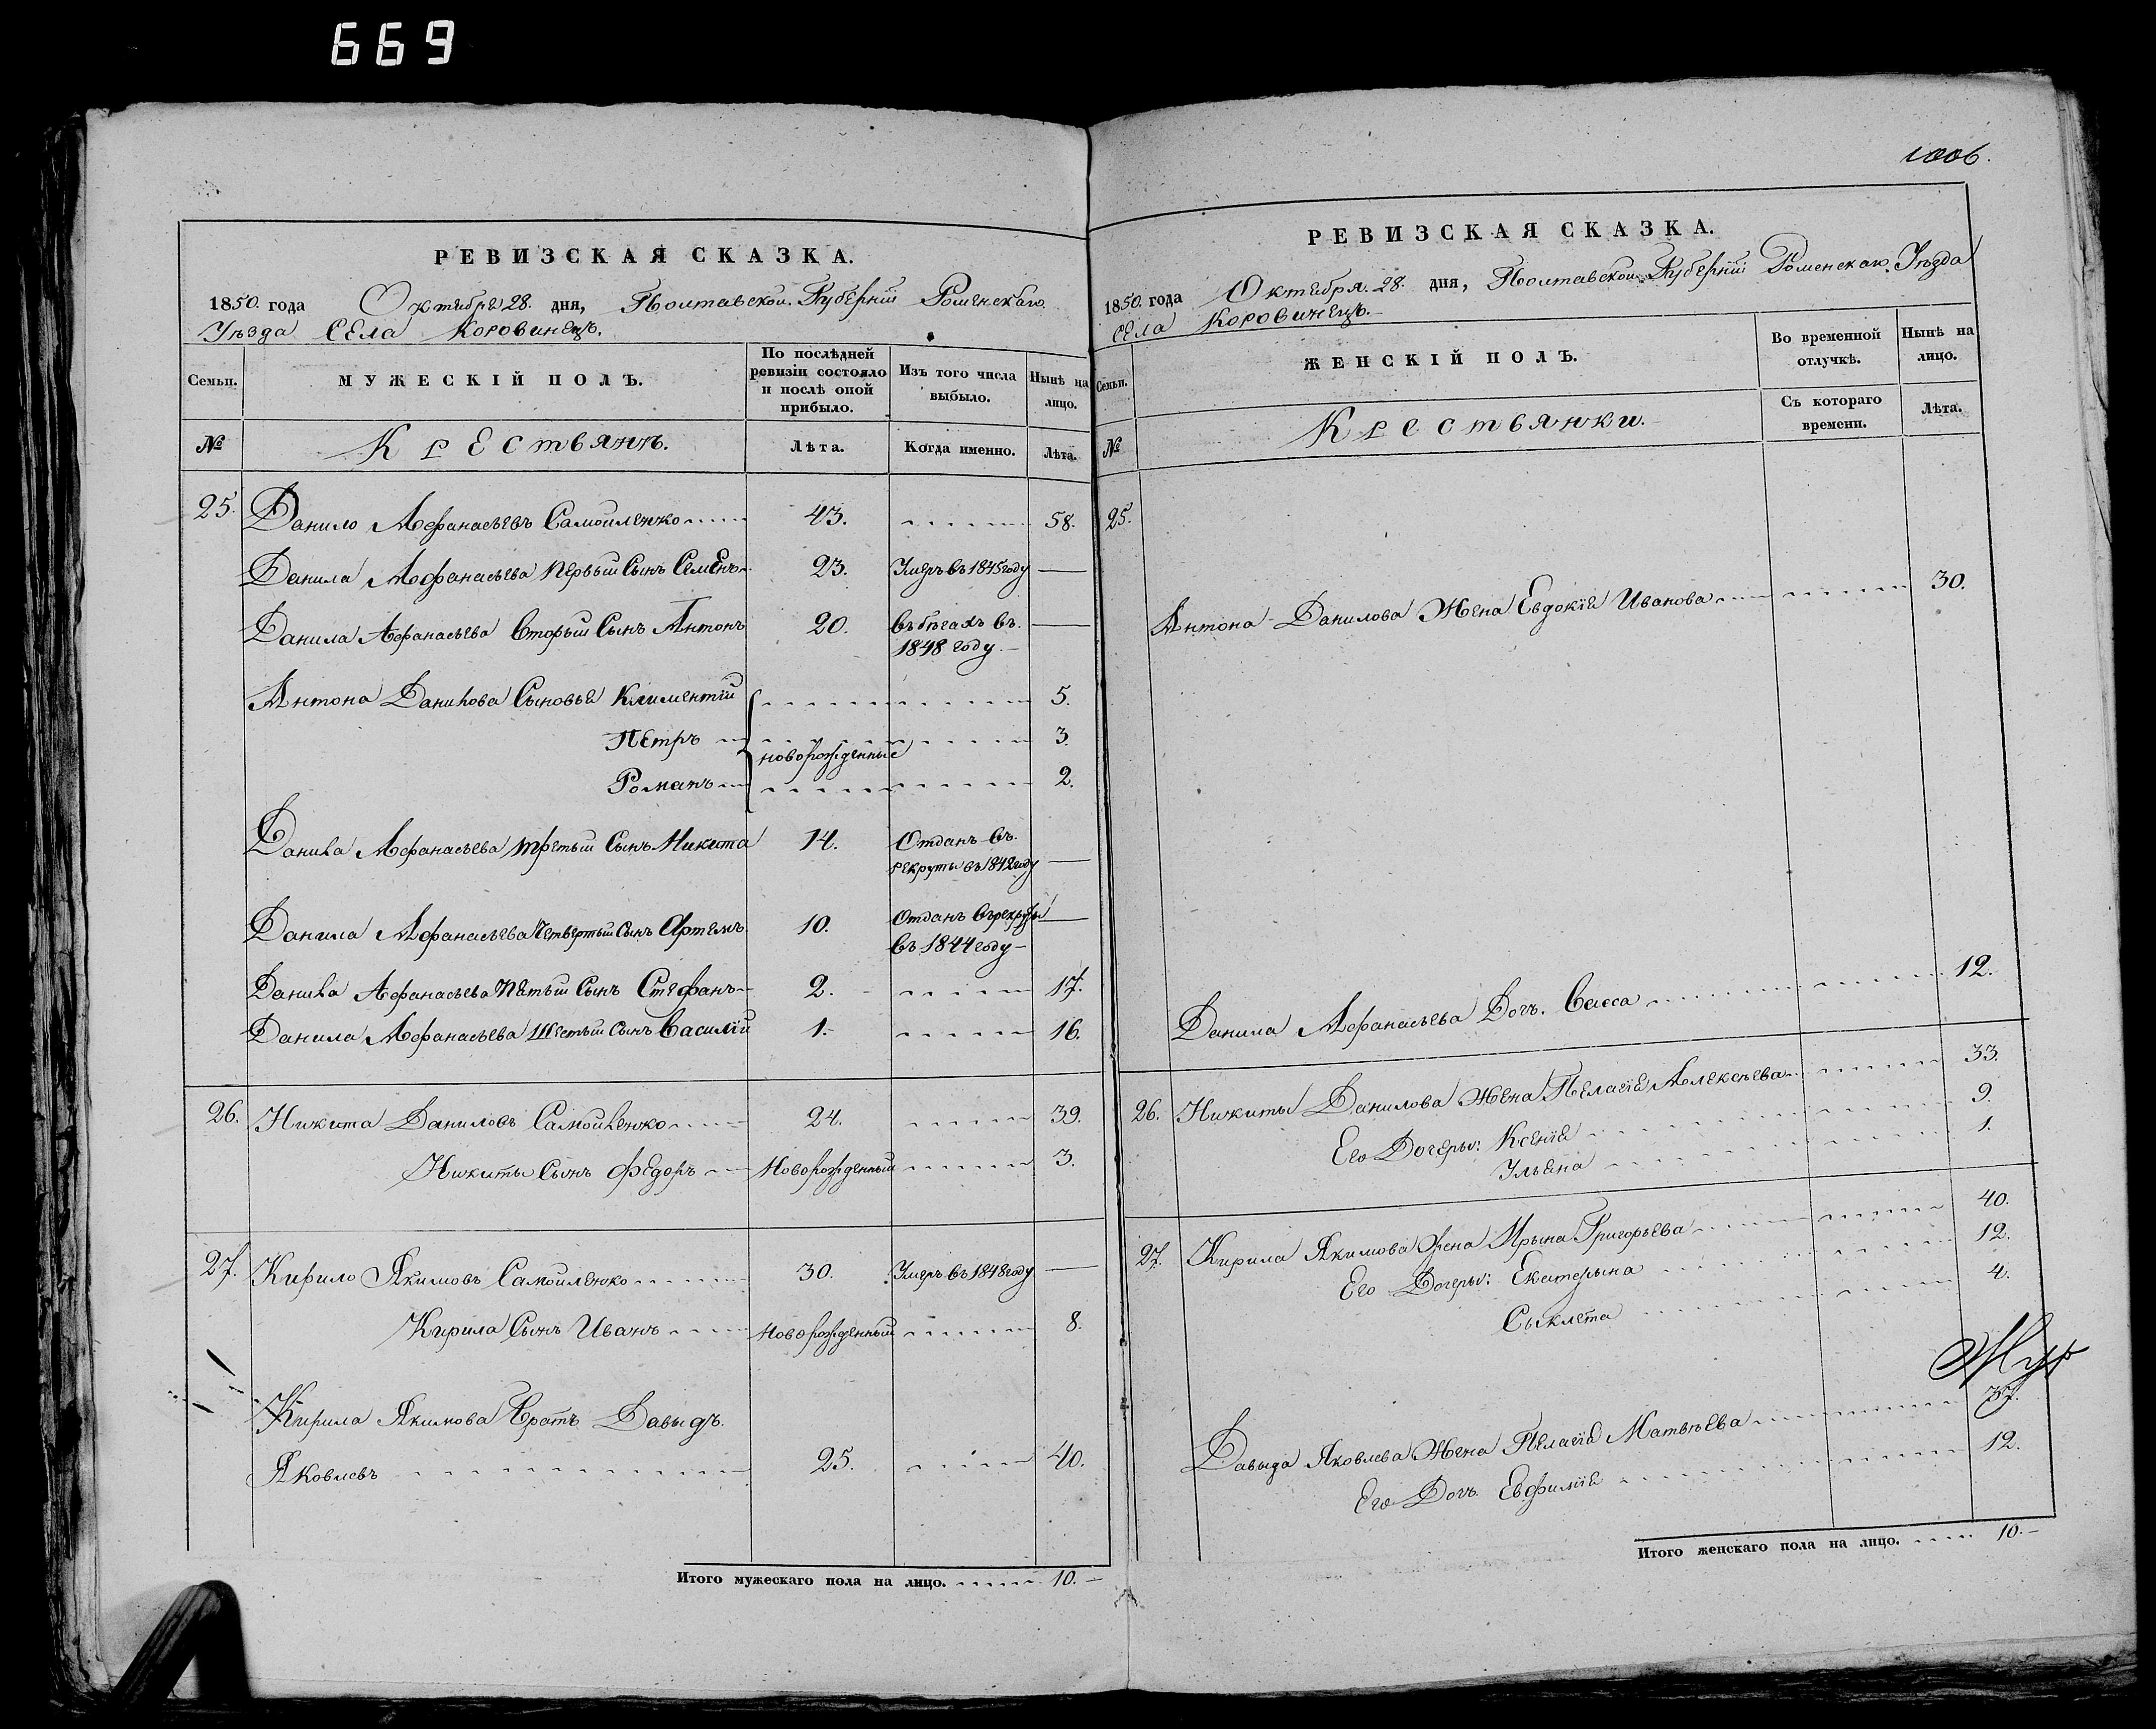 669
1006.
РЕВИЗСКАЯ СКАЗКА.
1850. года Октября 28. дня, Полтавской Губерніи Роменскаго
Уѣзда Села Коровинецъ.
Семьи.
МУЖЕСКІЙ ПОЛЪ.
По послѣдней ревизіи состояло и послѣ оной прибыло.
Изъ того числа выбыло.
Нынѣ на лицо.
№
Крестьянъ.
Лѣта.
Когда именно.
Лѣта.
25. Данило Афанасьевъ Самойленко 43. 58.
Данила Афанасьева первый Сынъ Семенъ 23. Умеръ въ 1845 году
Данила Афанасьева Вторый Сынъ Антонъ 20. въ бѣгахъ въ.
1848 году.
Антона Данилова Сыновья Климентій 5.
Петръ 3.
новорожденные
Романъ 2.
Данила Афанасьева третый Сынъ Никита 14. Отданъ въ.
рекруты въ 1842 году
Данила Афанасьева Четвертый Сынъ Артемъ 10. Отданъ въ рекруты
въ 1844 году
Данила Афанасьева Пятый Сынъ Стефанъ 2. 17.
Данила Афанасьева Шестый Сынъ Василій 1. 16.
26. Никита Даниловъ Самойленко 24. 39.
Никиты Сынъ Федоръ Новорожденный 3.
27. Кирило Якимовъ Самойленко 30. Умеръ въ 1848 году
Кирила Сынъ Иванъ Новорожденный 8.
Кирила Якимова братъ Давыдъ.
Яковлевъ 25. 40.
Итого мужескаго пола на лицо. 10.
РЕВИЗСКАЯ СКАЗКА.
1850. года Октября. 28. дня, Полтавской Губерніи Роменскаго Уѣзда
Села Коровинецъ.
Семьи.
ЖЕНСКІЙ ПОЛЪ.
Во временной отлучкѣ.
Нынѣ на лицо.
№
Крестьянки.
Съ котораго времени.
Лѣта.
25.
Антона Данилова Жена Евдокія Иванова 30.
Данила Афанасьева Дочь. Васса 12.
26. Никиты Данилова жена Пелагія Алексѣева 33.
Его Дочеры: Ксенія 9.
Ульяна 1.
27. Кирила Якимова Жена Ирына Григорьева 40.
Его Дочеры: Екатерына 12.
Сыклета 4.
Давыда Яковлева Жена Пелагія Матвѣева 37.
Его Дочь. Евфимія 12.
Итого женскаго пола на лицо. 10.